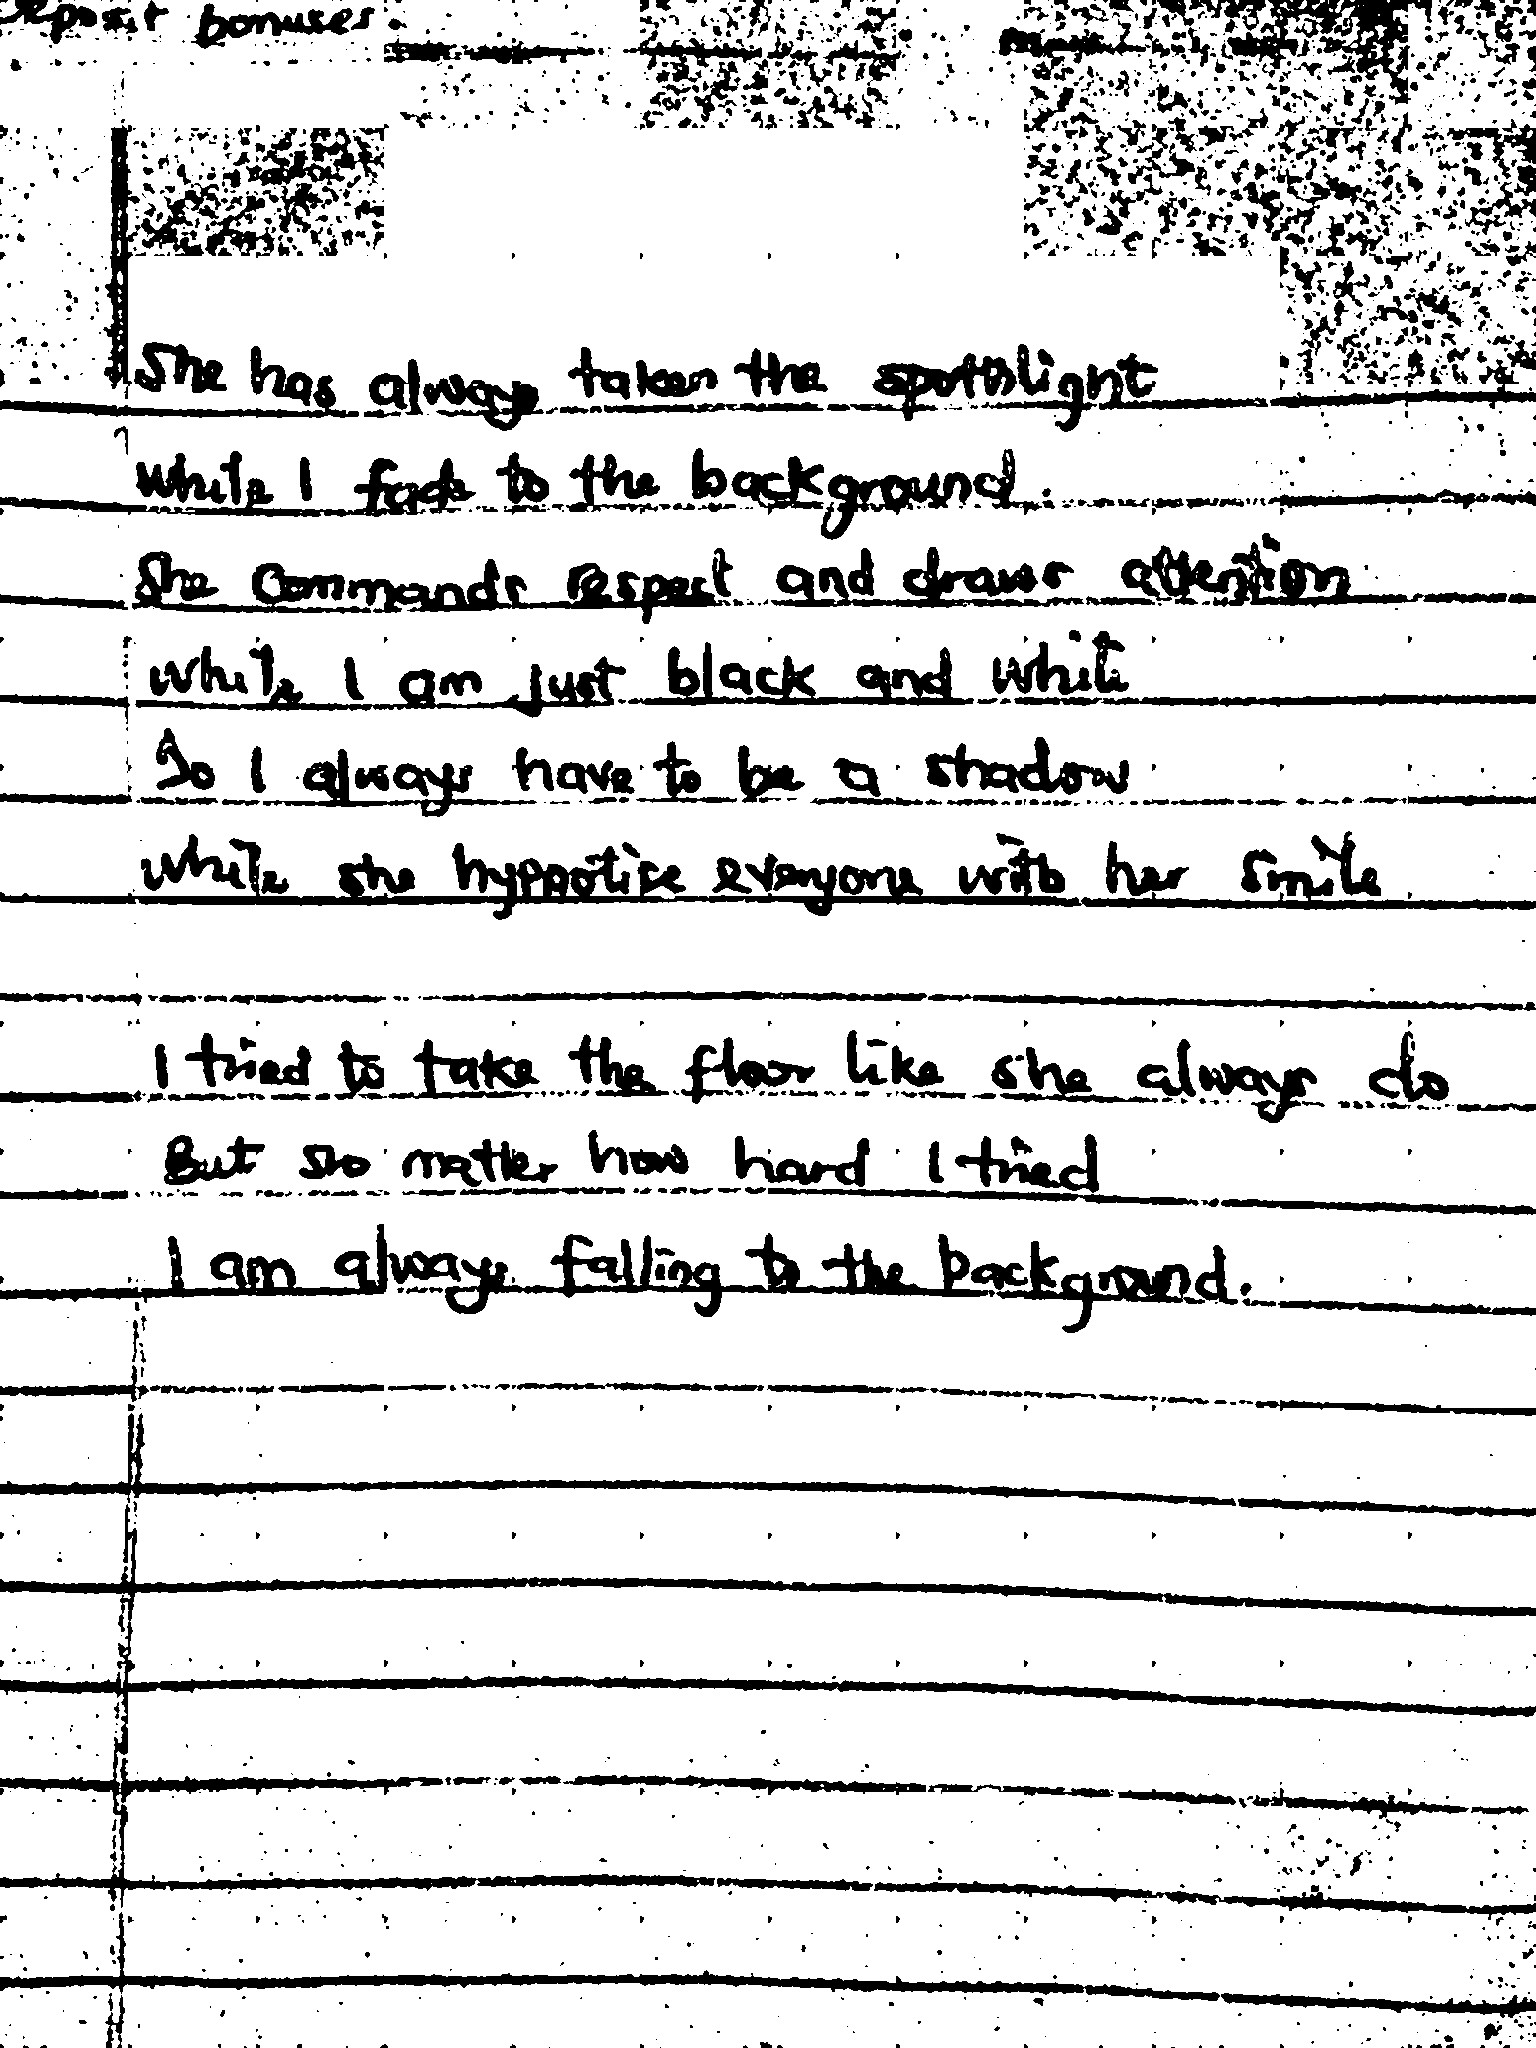 deposit bonuses
She has always taken the spotlight
while I fade to the background.
She commands respect and draws attention
while I am just black and white
So I always have to be a shadow
while she hypnotise everyone with her smile

I tried to take the floor like she always do
But no matter how hard I tried
I am always falling to the background.